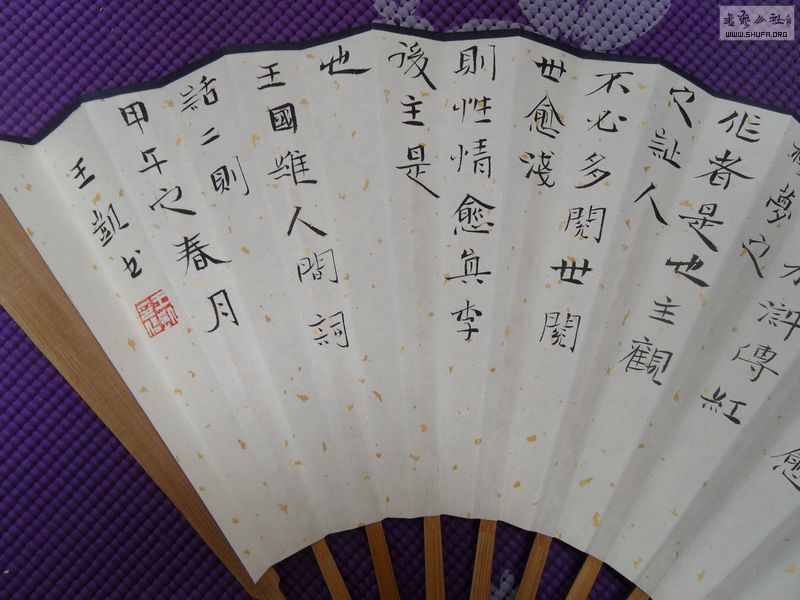 愈
水滸傳紅
樓夢之
作者是也主觀
之詩人
不必多閱世閱
世愈淺
則性情愈真李
後主是
也
王國維人間詞
話二則
甲午之春月
王凱書
WWW.SHUFA.ORG